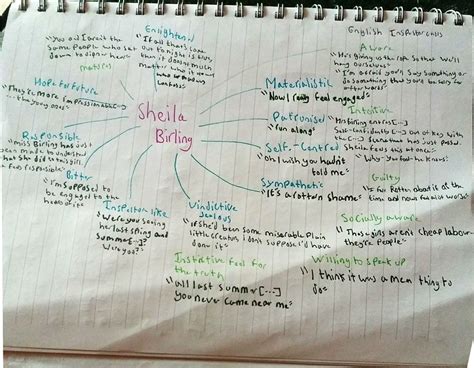 English Inspector calls
Enlightened
"If all that's come
out tonight is true,
then it doesn't much
matter who it was
who made us
confess"
"you and I aren't the
same people who sat
down to dinner here"
Hope for future
"They're more impressionable -
the young ones"
Responsible
"miss Birling has just
been made to understand
Bitter
"I'm supposed to
be engaged to the
hero of it"
Inspector like
"Were you seeing
her last spring and
summer [...]?
Were you?"
Instinctive feel for
the truth
"all last summer [...]
you never came near me"
Vindictive
Jealous
"if she'd been some miserable plain
little creature, I don't suppose I'd have
done it"
Sheila
Birling
Materialistic
"Now I really feel engaged"
Patronised
"run along"
Self-Centred
"Oh I wish you hadn't
told me"
Sympathetic
"It's a rotten shame"
Aware
"He's giving us the rope so that we'll
hang ourselves"
"I'm afraid you'll say something or
do something that you'll be sorry for
afterwards"
Intuitive
Mrs Birling enters [...]
self-confidently [...] out of key with
the [...] scene that has just passed.
Sheila feels this at once"
"Why - you fool - he knows"
Guilty
Socially aware
"These girls aren't cheap labour
they're people"
Willing to speak up
"I think it was a mean thing to
do"